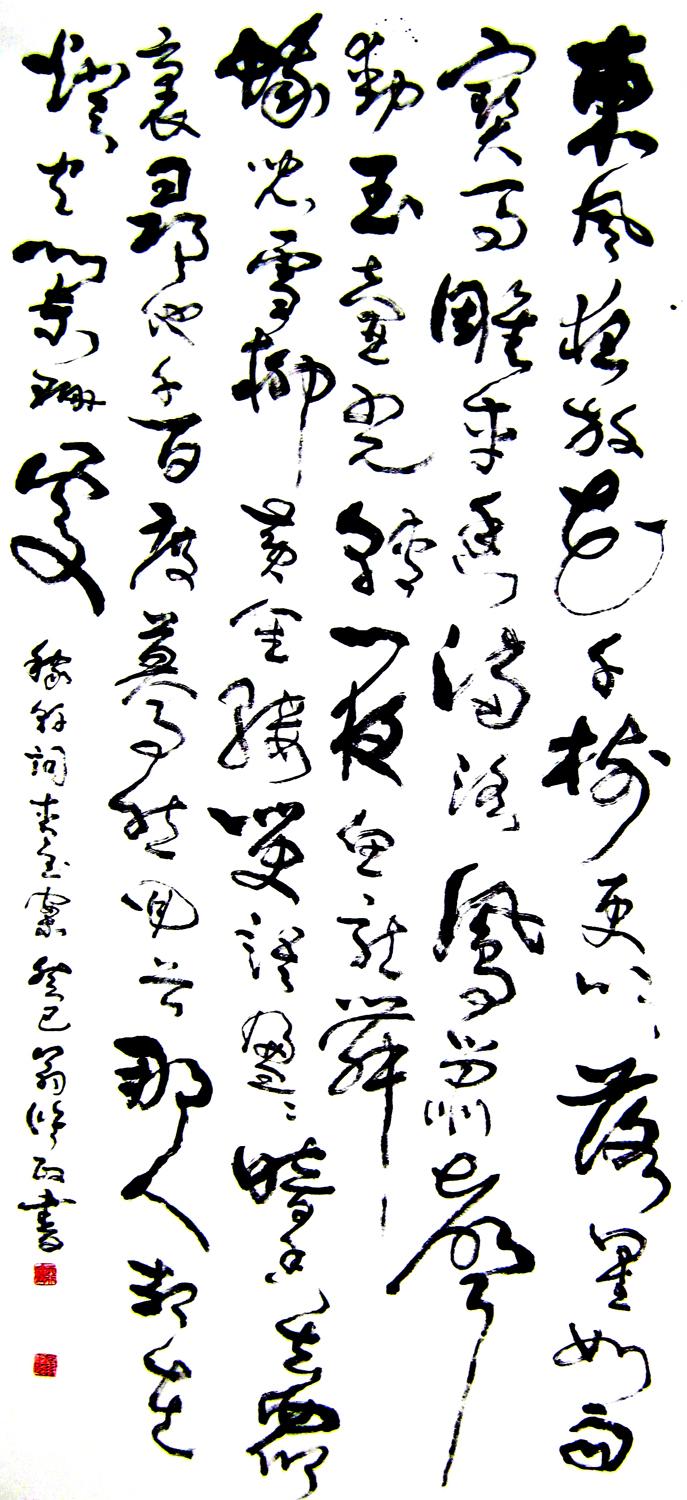 東風夜放花千樹更吹落星如雨
寶馬雕車香滿路鳳簫聲
動玉壺光轉一夜魚龍舞
蛾兒雪柳黃金縷笑語盈盈暗香去眾
裏尋他千百度驀然回首那人却在
燈火闌珊處
稼軒詞青玉案癸巳翁政書